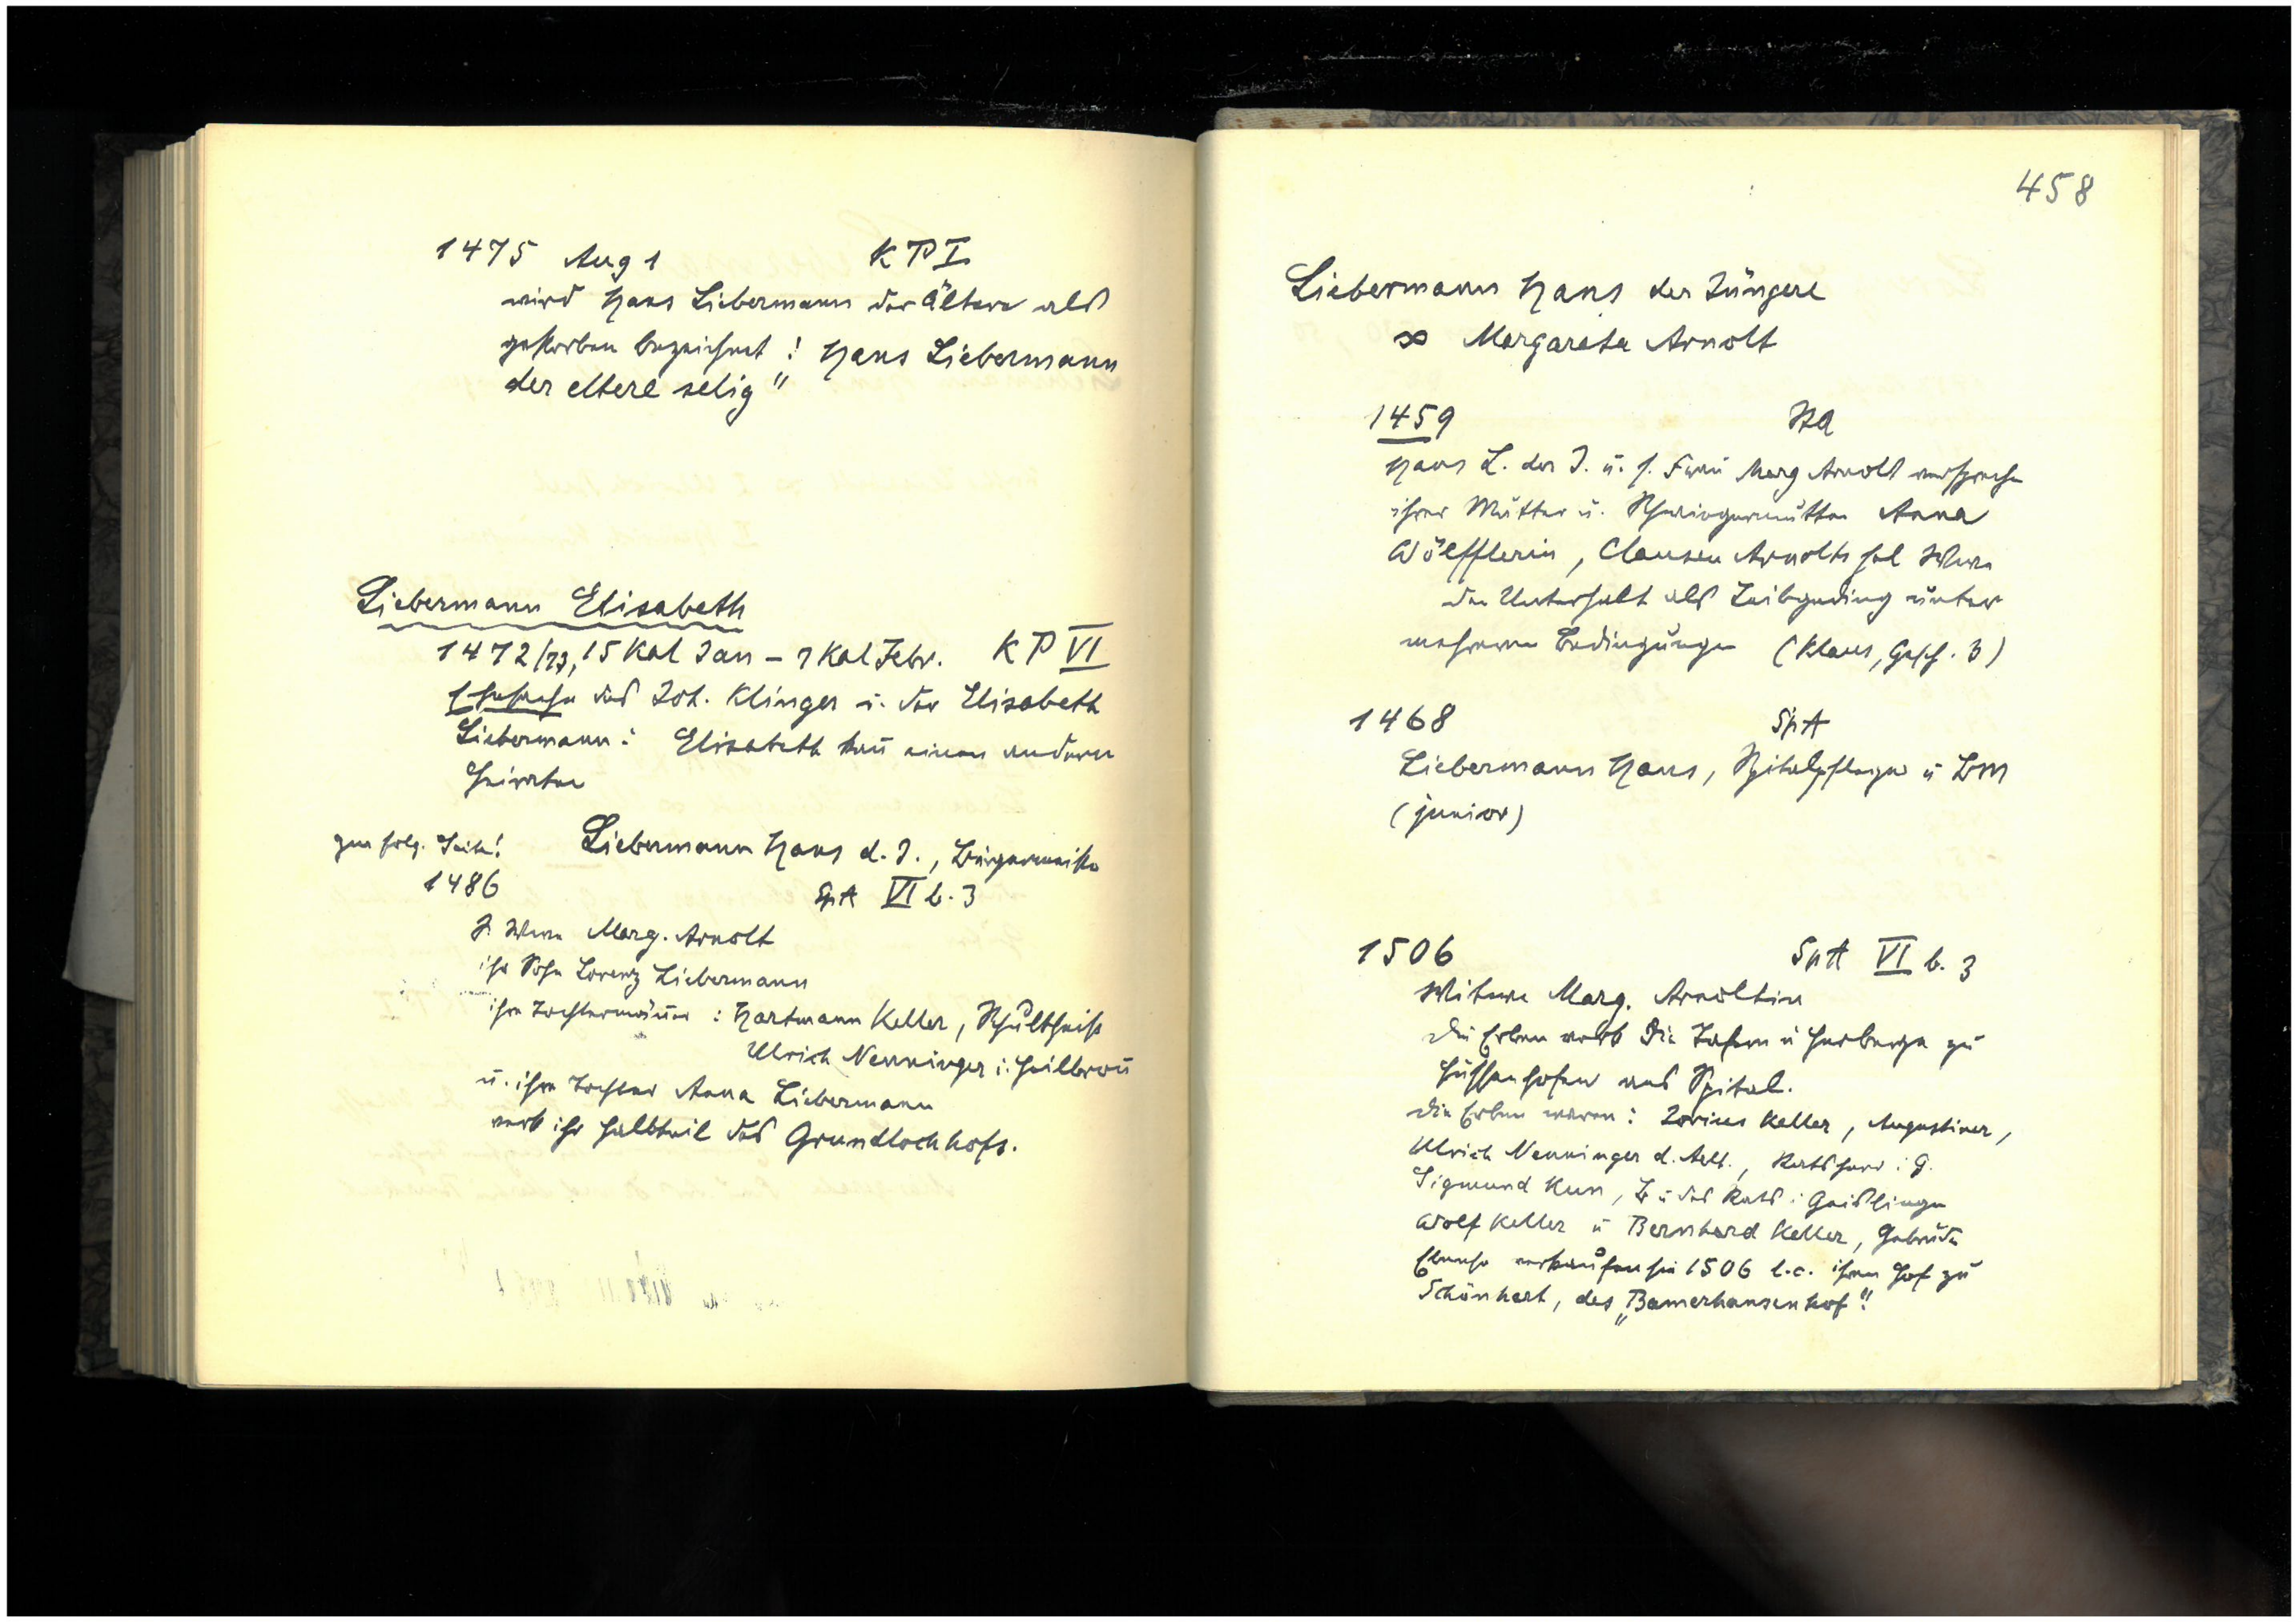 1475 Aug 1 KP I
wird Hans Liebermann der Ältere als
gestorben bezeichnet: Hans Liebermann
der eltere selig"
Liebermann Elisabeth
1472/73, 15 Kal Jan – 7 Kal Febr. KP VI
Ehesache des Joh. Klinger u. der Elisabeth
Liebermann: Elisabeth kañ einen andern
heiraten
zur folg. Seite! Liebermann Hans d. J., Bürgermeister
1486 SpA VI b. 3
S. Witwe Marg. Arnolt
ihr Sohn Lorenz Liebermann
ihre Tochtermäñer: Hartmann Keller, Schultheiß
Ulrich Nenninger i. Heilbroñ
u. ihre Tochter Anna Liebermann
verk ihr Halbteil des Grundlochhofs.
458
Liebermann Hans der Jüngere
∞ Margareta Arnolt
1459
Hans L. der J. u. s. Frau Marg Arnolt versprechen
ihrer Mutter u. Schwiegermutter Anna
Wölfflerin, Clausen Arnolts sel Witwe
den Unterhalt als Leibgeding unter
mehreren Bedingungen (Klaus, Gesch. 3)
1468 SpA
Liebermann Hans, Spitalpfleger u BM
(junior)
1506 SpA VI b. 3
Witwe Marg. Arnoltin
Die Erben verk die Tafern u Herberge zu
Hussenhofen ans Spital.
Die Erben waren: Zorius Keller, Augustiner,
Ulrich Nenninger d. Aelt., Ratsherr i G.
Sigmund Kun, B u des Rats i Geislingen
Wolf Keller u Bernhard Keller, Gebrüder
Ebenso verkaufen sie 1506 l.c. ihren Hof zu
Schönhart, des „Bamerhansen hof".